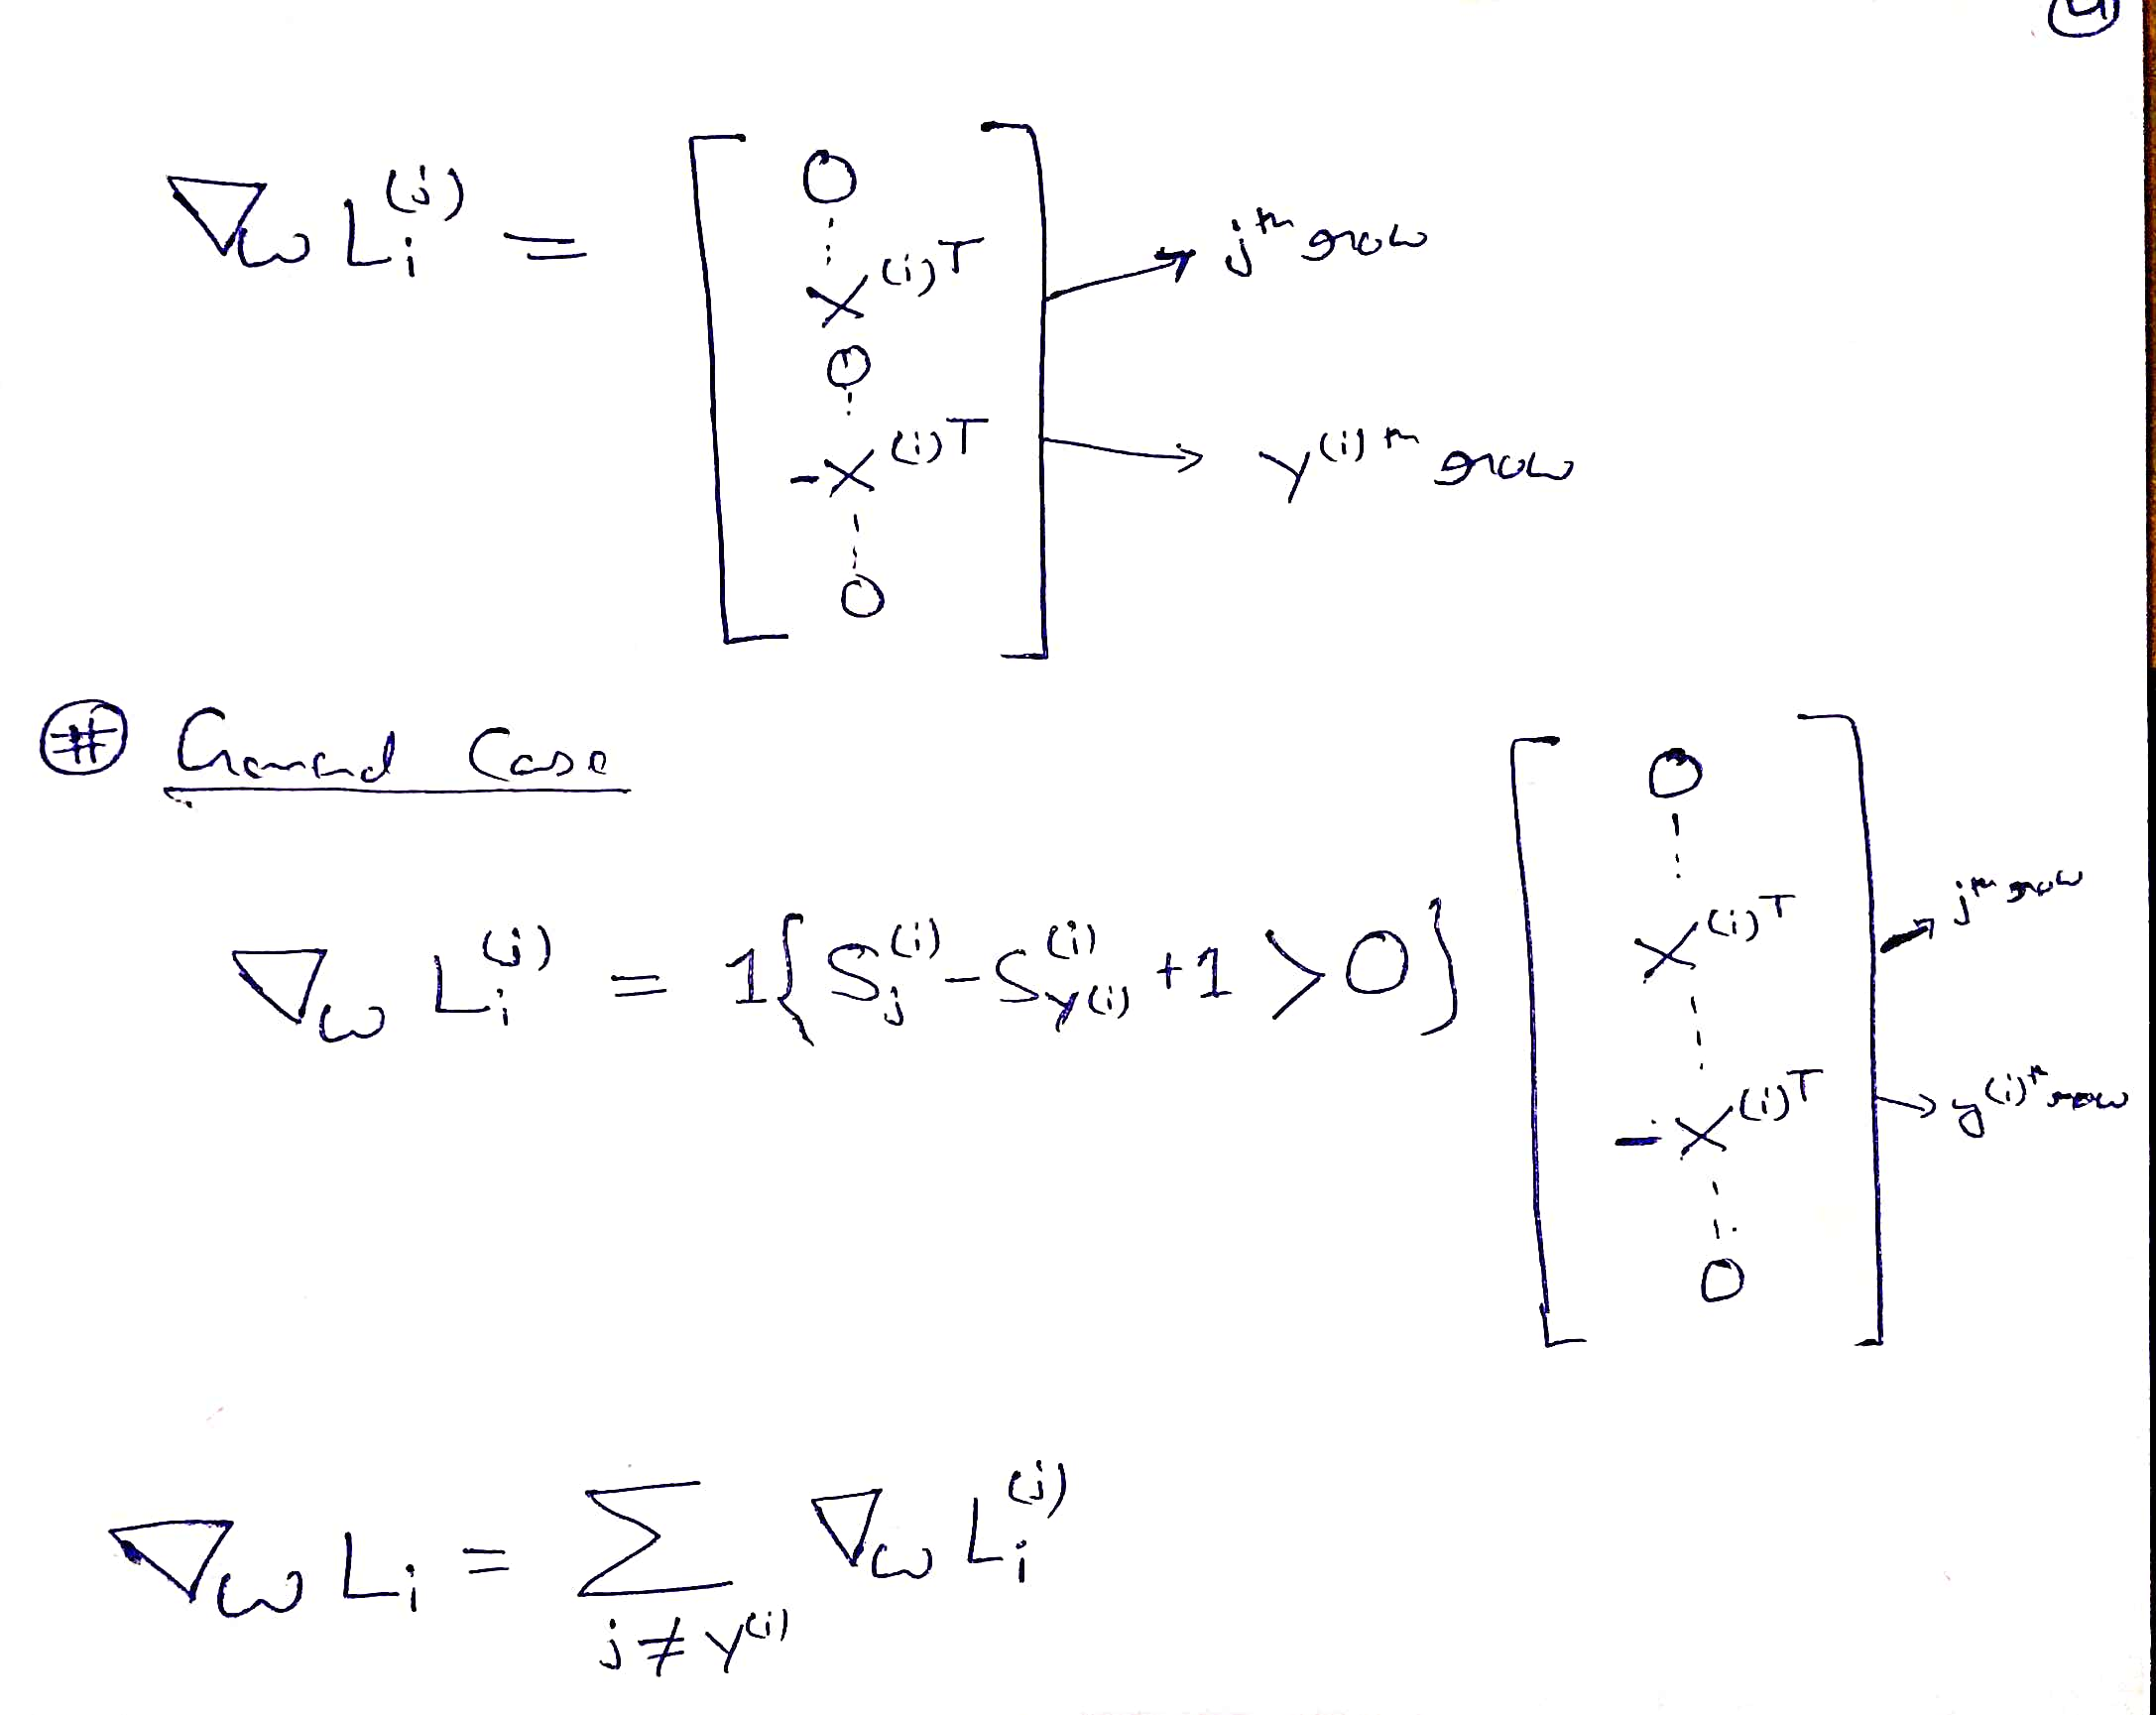 ∇_W L_i^(j) = [ 0 ⋮ X^(i)T 0 ⋮ -X^(i)T ⋮ 0 ] → j^th row → y^(i)th row
# General Case
∇_W L_i^(j) = 1{ S_j^(i) - S_y(i)^(i) + 1 > 0 } [ 0 ⋮ X^(i)T ⋮ -X^(i)T ⋮ 0 ] → j^th row → y^(i)th row
∇_W L_i = Σ_{j ≠ y^(i)} ∇_W L_i^(j)